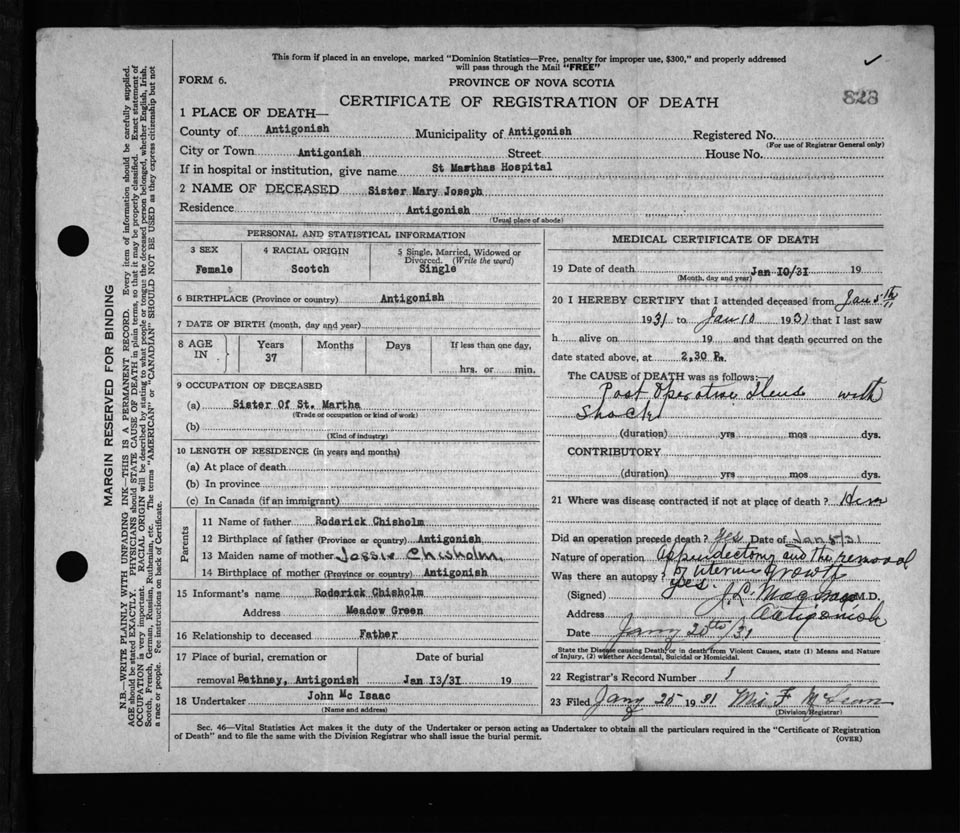 This form if placed in an envelope, marked "Dominion Statistics—Free, penalty for improper use, $300," and properly addressed
will pass through the Mail "FREE"
FORM 6.
PROVINCE OF NOVA SCOTIA
828
CERTIFICATE OF REGISTRATION OF DEATH
1 PLACE OF DEATH—
County of Antigonish Municipality of Antigonish Registered No.
(For use of Registrar General only)
City or Town Antigonish Street House No.
If in hospital or institution, give name St Marthas Hospital
2 NAME OF DECEASED Sister Mary Joseph
Residence Antigonish
(Usual place of abode)
PERSONAL AND STATISTICAL INFORMATION
3 SEX 4 RACIAL ORIGIN 5 Single, Married, Widowed or
Divorced. (Write the word)
Female Scotch Single
6 BIRTHPLACE (Province or country) Antigonish
7 DATE OF BIRTH (month, day and year)
8 AGE IN Years Months Days If less than one day,
37
hrs. or min.
9 OCCUPATION OF DECEASED
(a) Sister Of St. Martha
(Trade or occupation or kind of work)
(b)
(Kind of industry)
10 LENGTH OF RESIDENCE (in years and months)
(a) At place of death
(b) In province
(c) In Canada (if an immigrant)
Parents
11 Name of father Roderick Chisholm
12 Birthplace of father (Province or country) Antigonish
13 Maiden name of mother Jessie Chisholm
14 Birthplace of mother (Province or country) Antigonish
15 Informant's name Roderick Chisholm
Address Meadow Green
16 Relationship to deceased Father
17 Place of burial, cremation or Date of burial
removal Bethney, Antigonish Jan 13/31 19
18 Undertaker John Mc Isaac
(Name and address)
MEDICAL CERTIFICATE OF DEATH
19 Date of death Jan 10/31 19
(Month, day and year)
20 I HEREBY CERTIFY that I attended deceased from Jan 5th
1931 to Jan 10 1931 that I last saw
h alive on 19 and that death occurred on the
date stated above, at 2,30 P.
The CAUSE of DEATH was as follows:
Post Operative Ileus with
Shock
(duration) yrs mos dys.
CONTRIBUTORY
(duration) yrs mos dys.
21 Where was disease contracted if not at place of death?
Did an operation precede death? Yes Date of Jan 5/31
Nature of operation Appendectomy and the removal
of Uterine Growth
Was there an autopsy? yes
(Signed) J. L. M.D.
Address Antigonish
Date Jany 20th/31
State the Disease causing Death, or in death from Violent Causes, state (1) Means and Nature
of Injury, (2) whether Accidental, Suicidal or Homicidal.
22 Registrar's Record Number 1
23 Filed Jany 25 1931 Mrs. F
(Division Registrar)
Sec. 46—Vital Statistics Act makes it the duty of the Undertaker or person acting as Undertaker to obtain all the particulars required in the "Certificate of Registration
of Death" and to file the same with the Division Registrar who shall issue the burial permit.
(OVER)
MARGIN RESERVED FOR BINDING
N.B.—WRITE PLAINLY WITH UNFADING INK—THIS IS A PERMANENT RECORD. Every item of information should be carefully supplied.
AGE should be stated EXACTLY. PHYSICIANS should STATE CAUSE OF DEATH in plain terms, so that it may be properly classified. Exact statement of
OCCUPATION is very important. RACIAL ORIGIN will be described by stating to what people or tongue the deceased person belonged, whether English, Irish,
Scotch, French, German, Russian, Ruthenian, etc. The terms "AMERICAN" or "CANADIAN" SHOULD NOT BE USED as they express citizenship but not
a race or people. See instructions on back of Certificate.